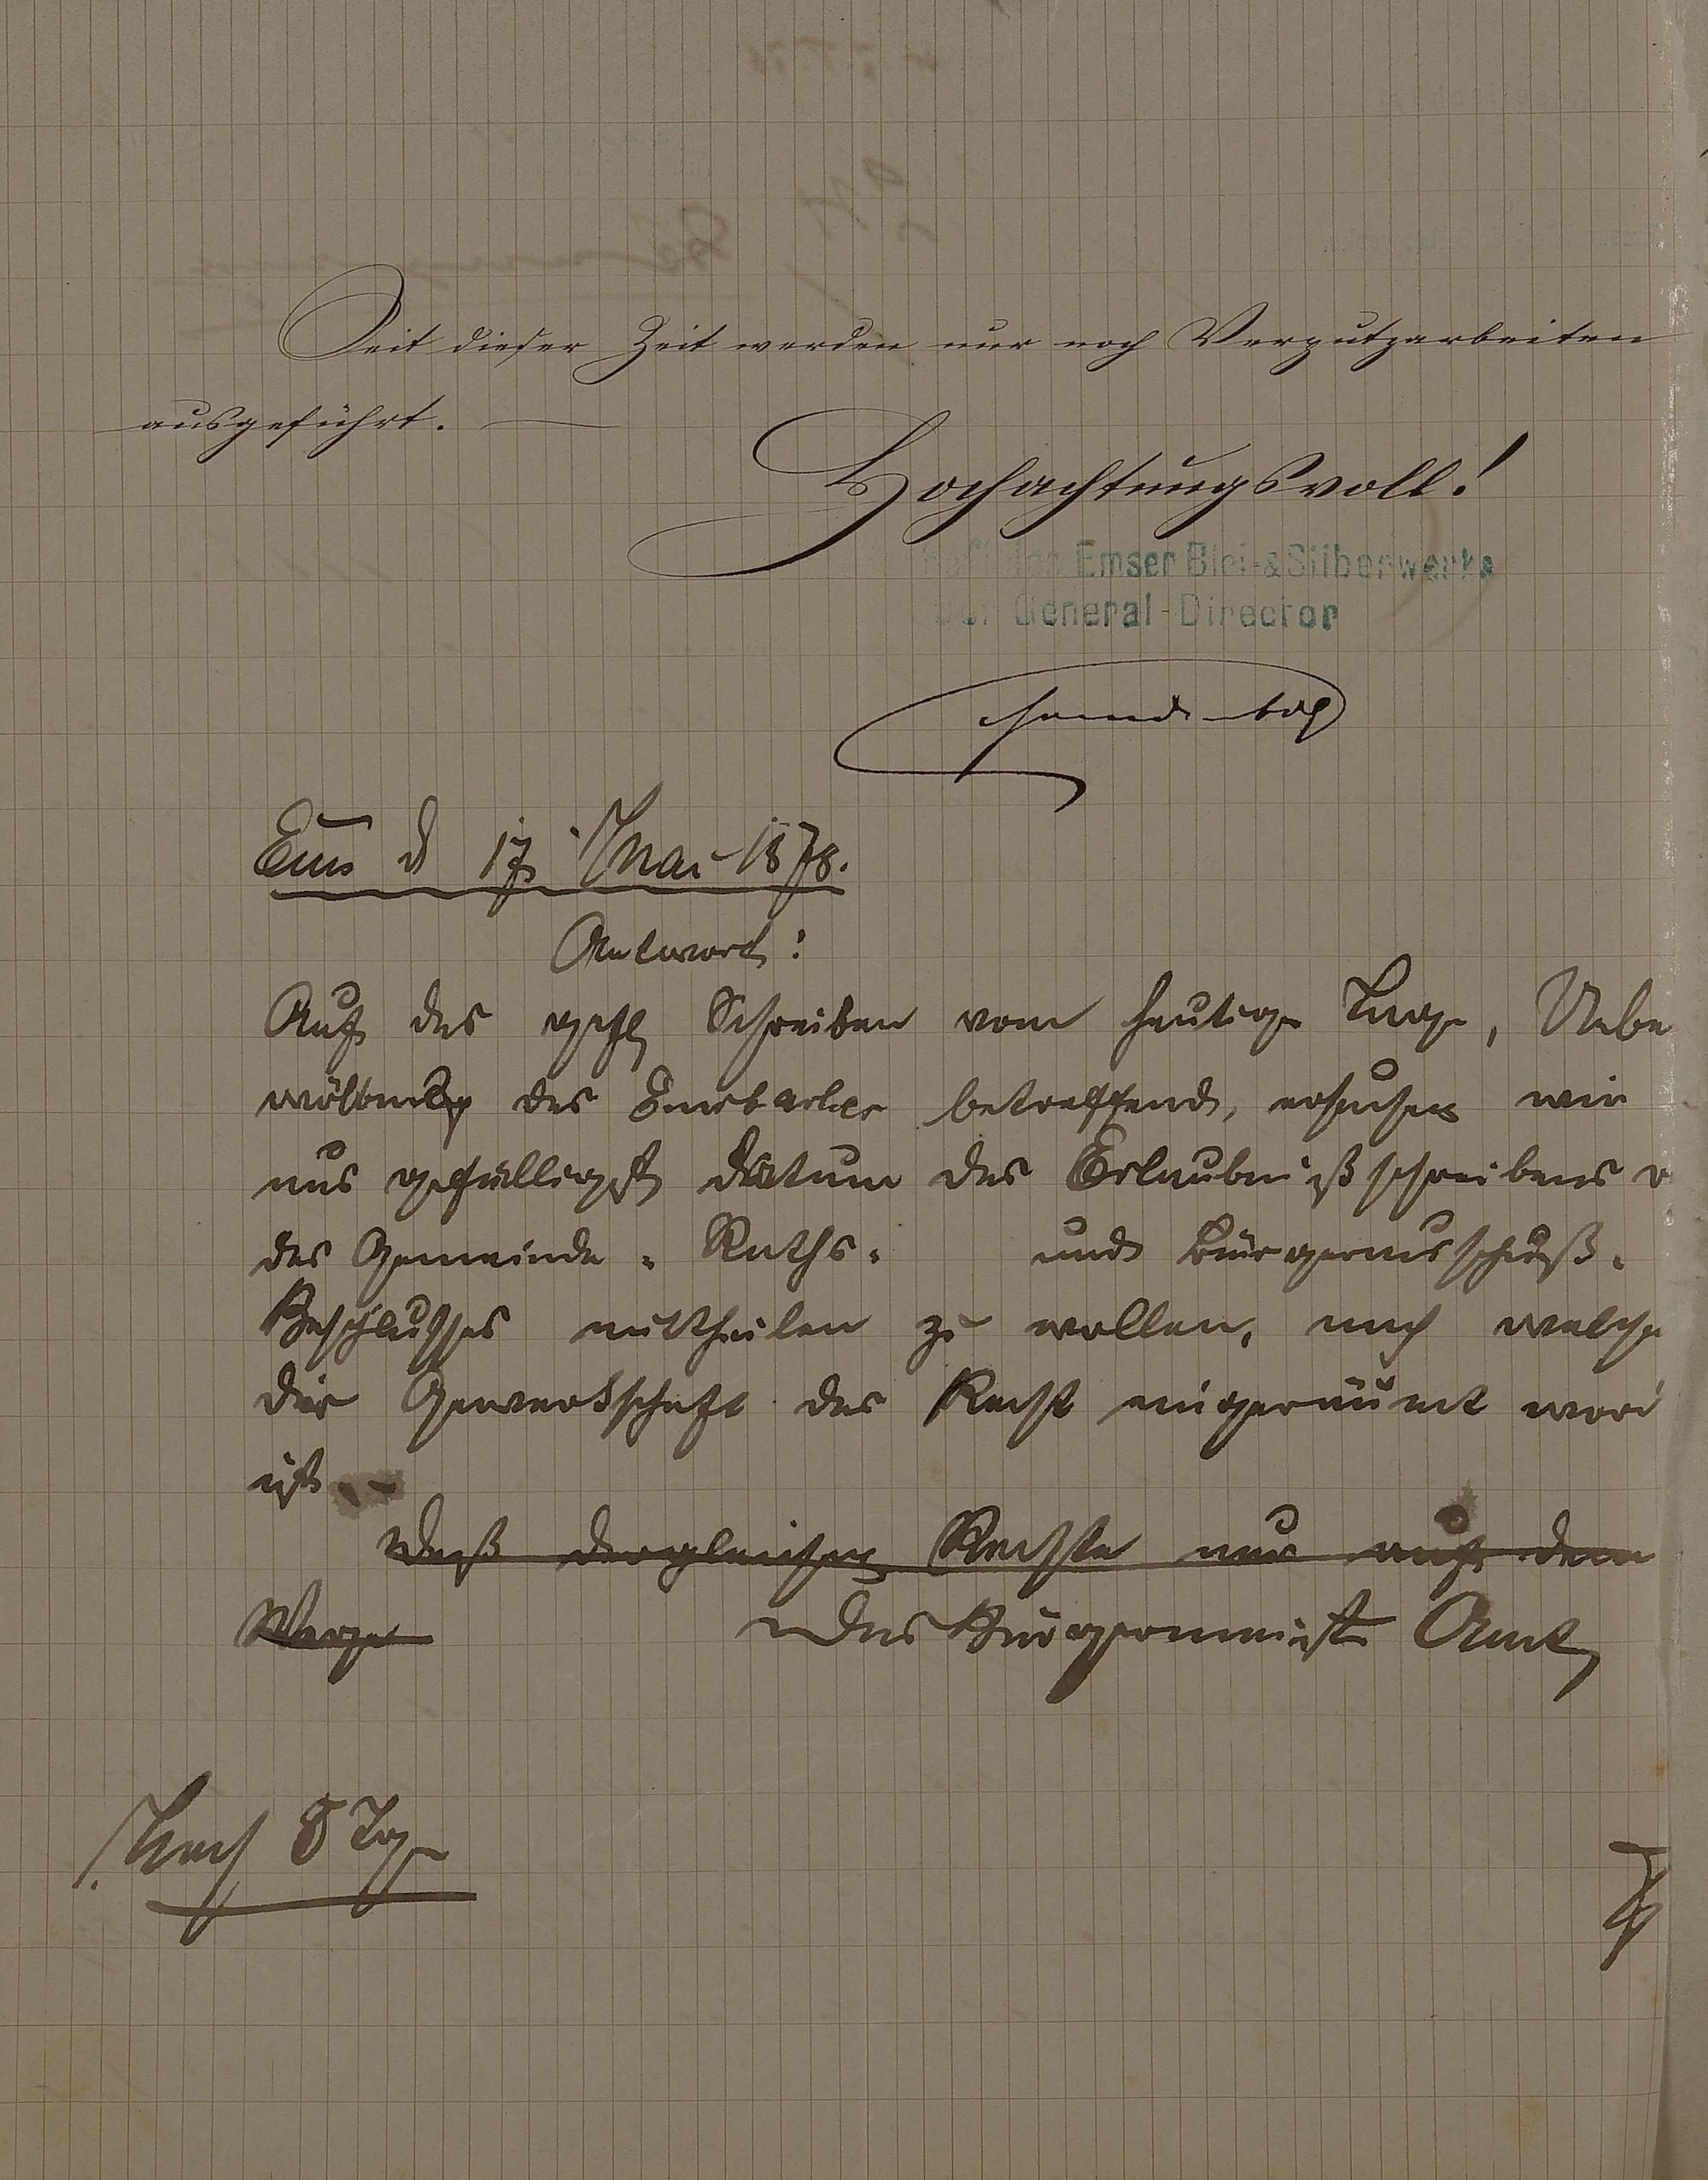 Seit dieser Zeit werden nur noch Verputzarbeiten
ausgeführt. —
Hochachtungsvoll!
Emser Blei-&Silberwerks
Der General-Director
Ems d 17 Mai 1878.
Antwort:
Auf das gefl Schreiben vom heutigen Tage, Uebe
wölbung des Emsbaches betreffend, ersuchen wir
uns gefälligst Datum des Erlaubnißschreibens v
des Gemeinde-Raths- und Bürgerausschuß-
Beschlusses mittheilen zu wollen, nach welche
der Gewerkschaft das Recht eingeräumt word
ist. –
Daß dergleichen Rechte nur auf dem
Wege
Das Bürgermeister Amt
Nach 8 Tage